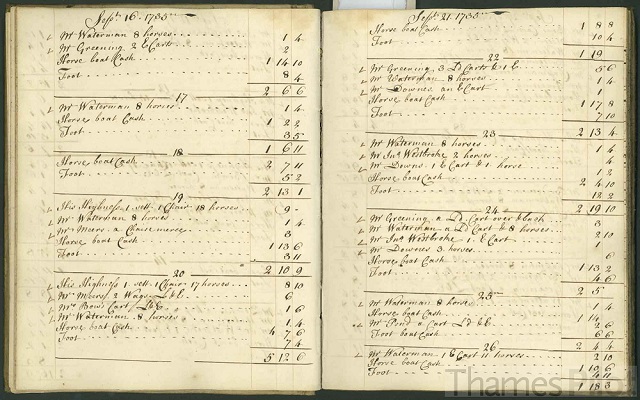 Sept. 16. 1735
Mr Waterman 8 horses 1 4
Mr Greening 2 E Carts 2
Horse boat Cash 1 14 10
Foot 8 4
2 6 6
17
Mr Waterman 8 horses 1 4
Horse boat Cash 1 2 2
Foot 3 5
1 6 11
18
Horse boat Cash 2 7 11
Foot 5 2
2 13 1
19
His Highness 1 vess. 1 Chair 18 horses 9 -
Mr Waterman 8 horses 1 4
Mr Meers a Chaise 3
Horse boat Cash 1 13 6
Foot 3 11
2 10 9
20
His Highness 1 vess. 1 Chair 17 horses 8 10
Mr Meers 2 Wags L & E 6
Mrs Cart L & E 1 6
Mr Waterman 8 horses 1 4
Horse boat Cash 4 7 6
Foot 7 4
5 12 6
Sept. 21. 1735
Horse boat Cash 1 8 8
Foot 10 4
1 19
22
Mr Greening 3 Ld Carts & 1 E 5 6
Mr Waterman 8 horses 1 4
Mr Downes an E Cart 1
Horse boat Cash 1 17 8
Foot 7 10
2 13 4
23
Mr Waterman 8 horses 1 4
Mr Jno Westbroke 2 horses 4
Mr Downs 1 E Cart & 1 horse 1 2
Horse boat Cash 2 4 10
Foot 12 2
2 19 10
24
Mr Greening a Ld Cart over & back 3
Mr Waterman a Ld Cart & 8 horses 2 10
Mr Jno Westbroke 1 E Cart 1
Mr Downes 3 horses 6
Horse boat Cash 1 13 2
Foot 4 6
2 5
25
Mr Waterman 8 horses 1 4
Horse boat Cash 1 14
Mr Pond a Cart Ld & E 2 6
Foot 6 6
2 4 4
26
Mr Waterman 1 E Cart 11 horses 2 10
Horse boat Cash 1 10 6
Foot 4 11
1 18 3